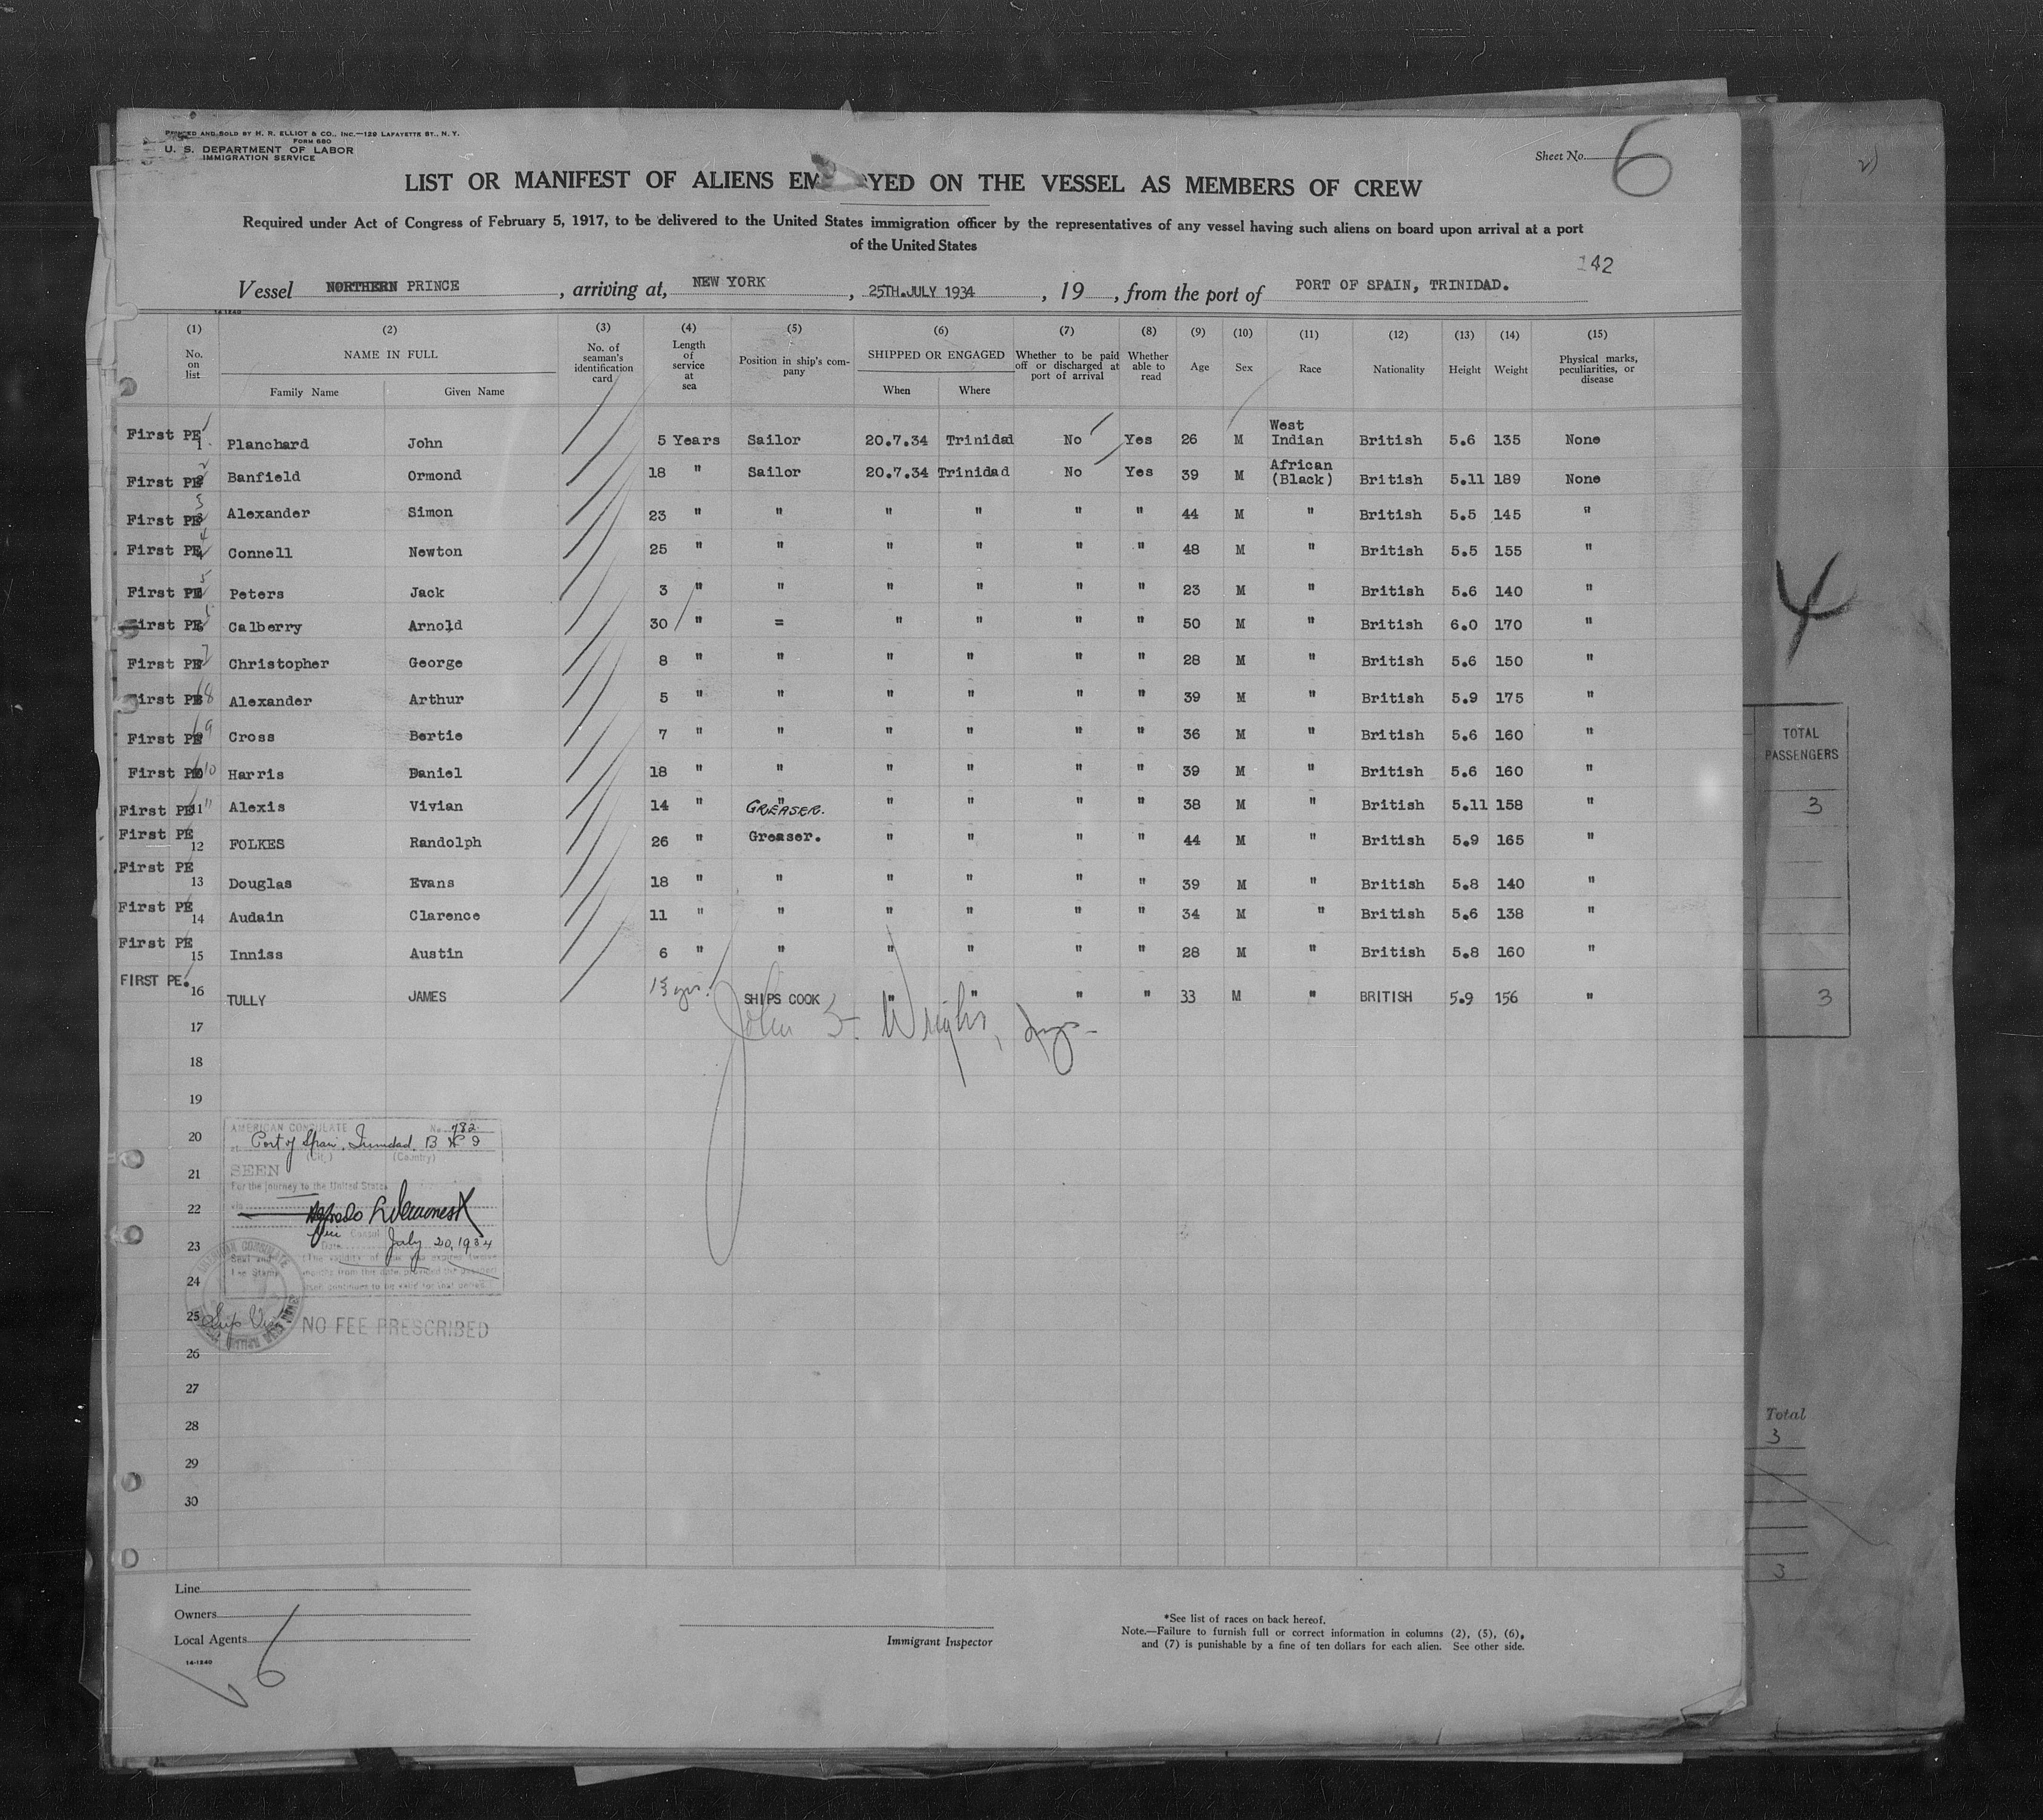 PRINTED AND SOLD BY H. R. ELLIOT & CO., INC.—120 LAFAYETTE ST., N. Y.
FORM 680
U. S. DEPARTMENT OF LABOR
IMMIGRATION SERVICE
Sheet No. 6
LIST OR MANIFEST OF ALIENS EM YED ON THE VESSEL AS MEMBERS OF CREW
Required under Act of Congress of February 5, 1917, to be delivered to the United States immigration officer by the representatives of any vessel having such aliens on board upon arrival at a port
of the United States
142
Vessel NORTHERN PRINCE, arriving at, NEW YORK, 25TH.JULY 1934, 19 , from the port of PORT OF SPAIN, TRINIDAD.
14-1240
(1) (2) (3) (4) (5) (6) (7) (8) (9) (10) (11) (12) (13) (14) (15)
No. on list NAME IN FULL Family Name Given Name No. of seaman's identification card Length of service at sea Position in ship's company SHIPPED OR ENGAGED When Where Whether to be paid off or discharged at port of arrival Whether able to read Age Sex Race Nationality Height Weight Physical marks, peculiarities, or disease
First PE 1 Planchard John 5 Years Sailor 20.7.34 Trinidad No Yes 26 M West Indian British 5.6 135 None
First PE 2 Banfield Ormond 18 " Sailor 20.7.34 Trinidad No Yes 39 M African (Black) British 5.11 189 None
First PE 3 Alexander Simon 23 " " " " " " 44 M " British 5.5 145 "
First PE 4 Connell Newton 25 " " " " " " 48 M " British 5.5 155 "
First PE 5 Peters Jack 3 " " " " " " 23 M " British 5.6 140 "
First PE 6 Calberry Arnold 30 " = " " " " 50 M " British 6.0 170 "
First PE 7 Christopher George 8 " " " " " " 28 M " British 5.6 150 "
First PE 8 Alexander Arthur 5 " " " " " " 39 M " British 5.9 175 "
First PE 9 Cross Bertie 7 " " " " " " 36 M " British 5.6 160 "
First PE 10 Harris Daniel 18 " " " " " " 39 M " British 5.6 160 "
First PE 11 Alexis Vivian 14 " " GREASER. " " " " 38 M " British 5.11 158 "
First PE 12 FOLKES Randolph 26 " Greaser. " " " " 44 M " British 5.9 165 "
First PE 13 Douglas Evans 18 " " " " " " 39 M " British 5.8 140 "
First PE 14 Audain Clarence 11 " " " " " " 34 M " British 5.6 138 "
First PE 15 Inniss Austin 6 " " " " " " 28 M " British 5.8 160 "
FIRST PE. 16 TULLY JAMES yrs. SHIPS COOK " " " " 33 M " BRITISH 5.9 156 "
17
John Wright,
18
19
20
21
22
23
24
25
26
27
28
29
30
AMERICAN CONSULATE No. 782
at Port of Spain, Trinidad, B W I
(City) (Country)
SEEN
For the journey to the United States
Consul
Date July 20, 1934
Seal and
Fee Stamp
AMERICAN CONSULATE
Ship Visa
NO FEE PRESCRIBED
Line
Owners
Local Agents
14-1240
6
Immigrant Inspector
*See list of races on back hereof.
Note.—Failure to furnish full or correct information in columns (2), (5), (6),
and (7) is punishable by a fine of ten dollars for each alien. See other side.
TOTAL
PASSENGERS
3
3
Total
3
3